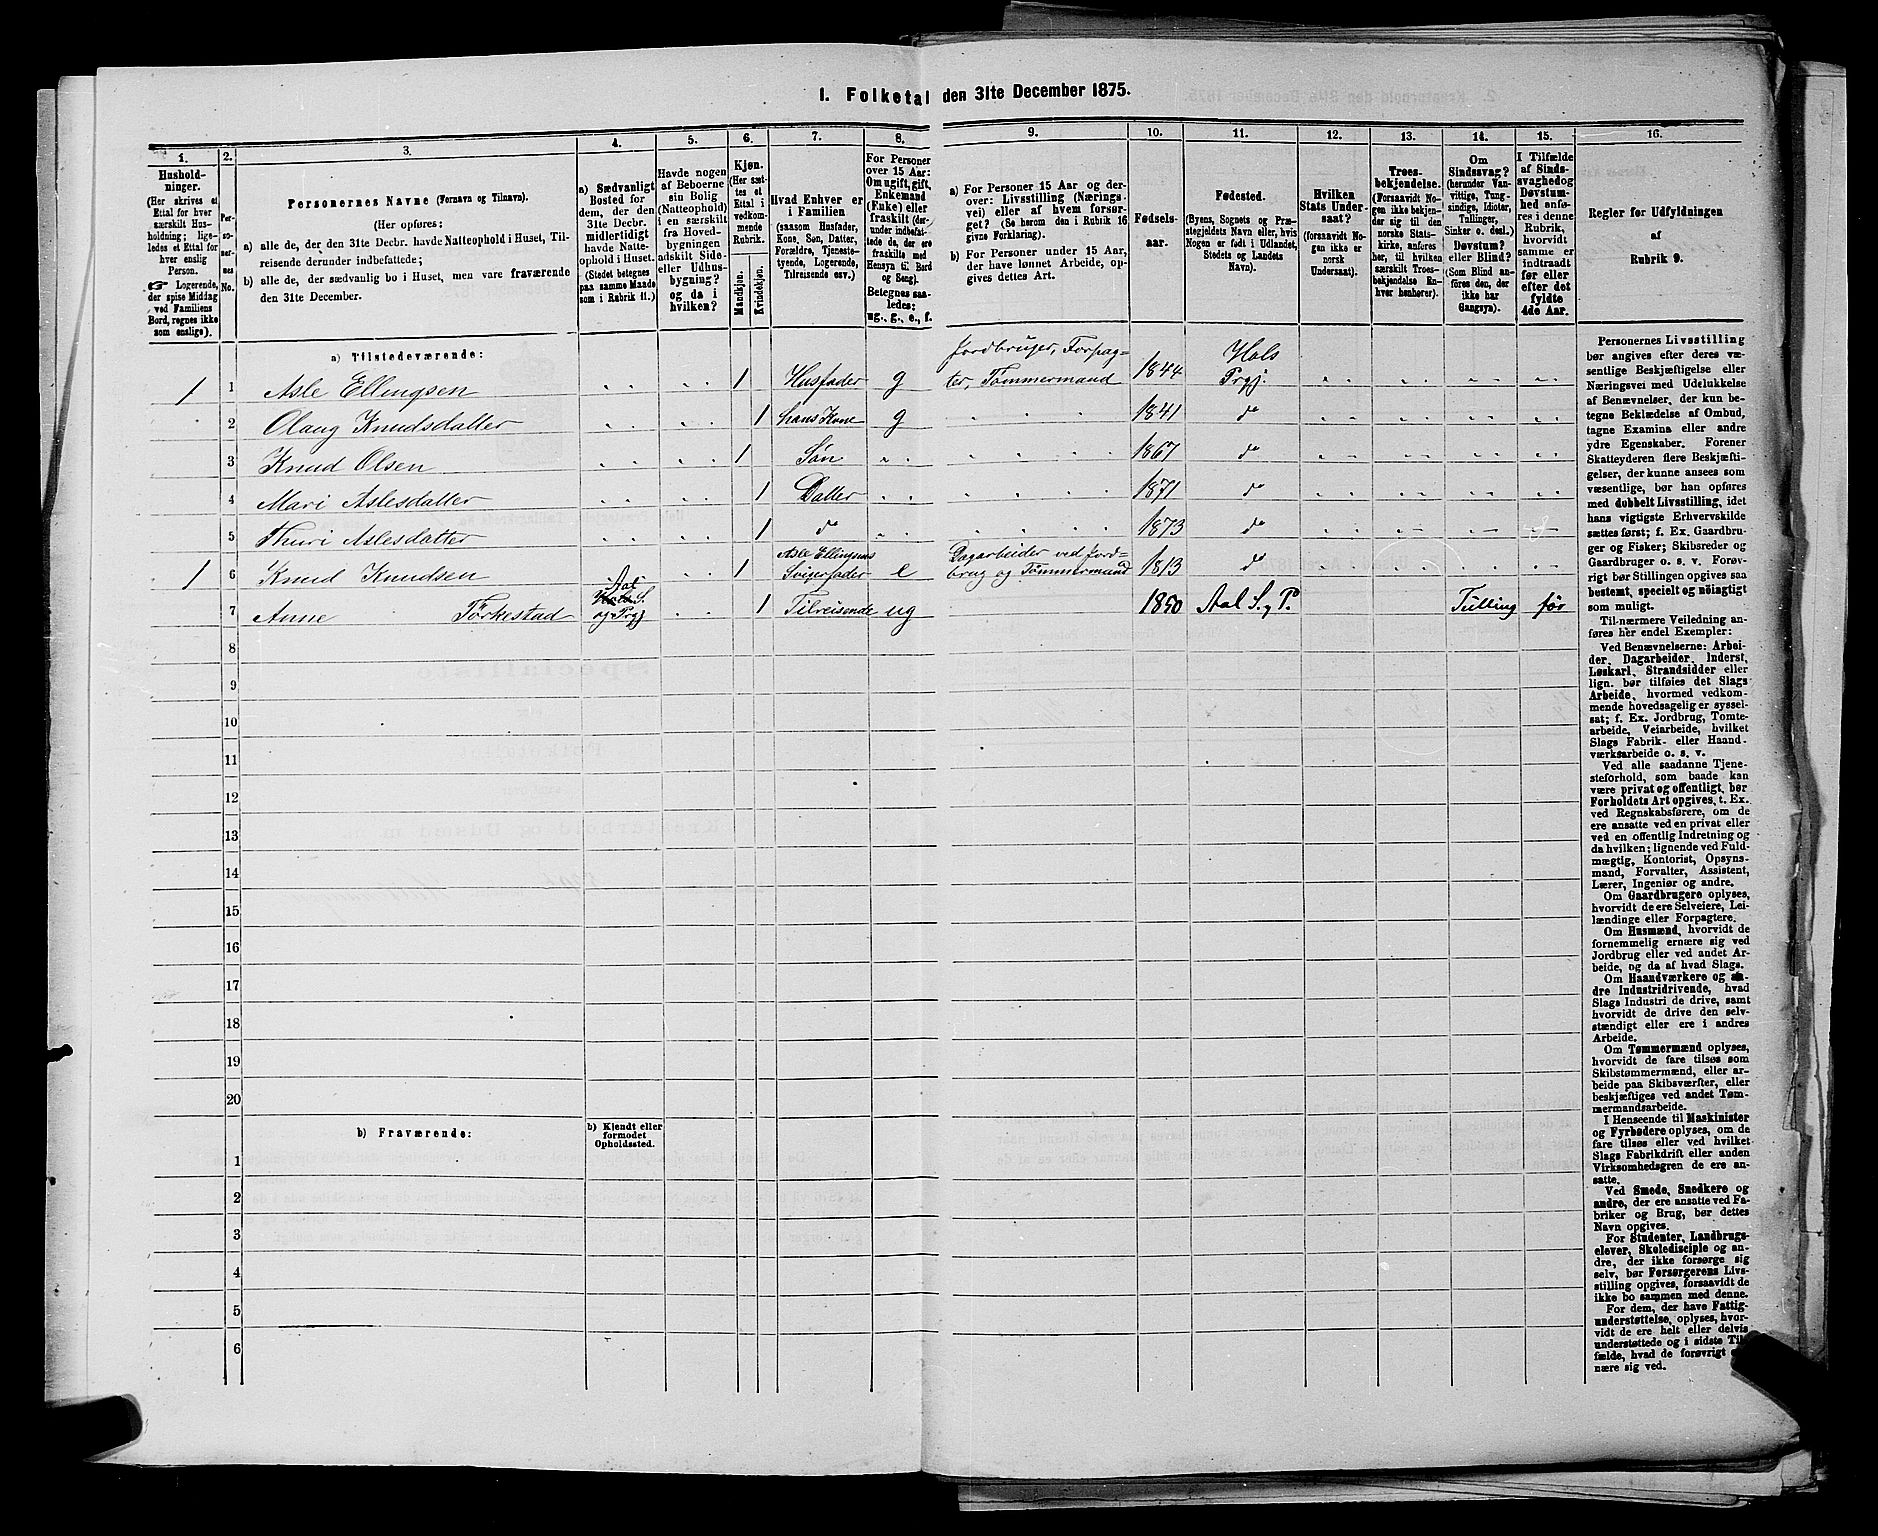 1. Folketal den 31te December 1875.
1. 2. 3. 4. 5. 6. 7. 8. 9. 10. 11. 12. 13. 14. 15. 16.
Hushold-
ninger.
(Her skrives et
Ettal for hver
særskilt Hus-
holdning; lige-
ledes et Ettal for
hver enslig
Person.
☞ Logerende,
der spise Middag
ved Familiens
Bord, regnes ikke
som enslige).
Per-
so-
ner-
nes
No.
Personernes Navne (Fornavn og Tilnavn).
(Her opføres:
a) alle de, der den 31te Decbr. havde Natteophold i Huset, Til-
reisende derunder indbefattede;
b) alle de, der sædvanlig bo i Huset, men vare fraværende
den 31te December.
a) Sædvanligt
Bosted for
dem, der den
31te Decbr.
midlertidigt
havde Natte-
ophold i Huset.
(Stedet betegnes
paa samme Maade
som i Rubrik 11.)
Havde nogen
af Beboerne
sin Bolig
(Natteophold)
i en særskilt
fra Hoved-
bygningen
adskilt Side-
eller Udhus-
bygning?
og da i
hvilken?
Kjøn.
(Her sæt-
tes et
Ettal i
vedkom-
mende
Rubrik.
Mandkjøn.
Kvindekjøn.
Hvad Enhver er
i Familien
(saasom Husfader,
Kone, Søn, Datter,
Forældre, Tjeneste-
tyende, Logerende,
Tilreisende osv.)
For Personer
over 15 Aar:
Om ugift, gift,
Enkemand
(Enke) eller
fraskilt (der-
under indbefat-
tede de, der ere
fraskilte med
Hensyn til Bord
og Seng).
Betegnes saa-
ledes:
ug., g., e., f.
a) For Personer 15 Aar og der-
over: Livsstilling (Nærings-
vei) eller af hvem forsør-
get? (Se herom den i Rubrik 16
givne Forklaring).
b) For Personer under 15 Aar,
der have lønnet Arbeide, op-
gives dettes Art.
Fødsels-
aar.
Fødested.
(Byens, Sognets og Præ-
stegjeldets Navn eller, hvis
Nogen er født i Udlandet,
Stedets og Landets
Navn).
Hvilken
Stats Under-
saat?
(forsaavidt No-
gen ikke er
norsk
Undersaat).
Troes-
bekjendelse.
(Forsaavidt No-
gen ikke bekjen-
der sig til den
norske Stats-
kirke, anføres
her, til hvilken
særskilt Troes-
bekjendelse En-
hver henhører).
Om
Sindssvag?
(herunder Van-
vittige, Tung-
sindige, Idioter,
Tullinger,
Sinker o. desl.)
Døvstum?
eller Blind?
(Som Blind an-
føres den, der
ikke har
Gangsyn).
I Tilfælde
af Sinds-
svaghed og
Døvstum-
hed anføres
i denne
Rubrik,
hvorvidt
samme er
indtraadt
før eller
efter det
fyldte
4de Aar.
Regler for Udfyldningen
af
Rubrik 9.
a) Tilstedeværende:
1 1 Asle Ellingsen 1 Husfader g Jordbruger, Forpag-
ter, Tømmermand 1844 Hols
Prgj.
2 Olaug Knudsdatter 1 hans Kone g 1841 do
3 Knud Olsen 1 Søn 1867 do
4 Mari Aslesdatter 1 Datter 1871 do
5 Thuri Aslesdatter 1 do 1873 do
1 6 Knud Knudsen 1 Asle Ellingsens
Svigerfader e Dagarbeider ved Jord-
brug og Tømmermand 1813 do
7 Anne Törkestad Aal
Hols S.
og Prgj 1 Tilreisende ug 1850 Aal S. y P. Tulling før
8
9
10
11
12
13
14
15
16
17
18
19
20
b) Fraværende:
b) Kjendt eller
formodet
Opholdssted.
1
2
3
4
5
6
Personernes Livsstilling
bør angives efter deres væ-
sentlige Beskjæftigelse eller
Næringsvei med Udelukkelse
af Benævnelser, der kun be-
tegne Beklædelse af Ombud,
tagne Examina eller andre
ydre Egenskaber. Forener
Skatteyderen flere Beskjæfti-
gelser, der kunne ansees som
væsentlige, bør han opføres
med dobbelt Livsstilling, idet
hans vigtigste Erhvervskilde
sættes først; f. Ex. Gaardbru-
ger og Fisker; Skibsreder og
Gaardbruger o. s. v. Forøv-
rigt bør Stillingen opgives saa
bestemt, specielt og nøiagtigt
som muligt.
Til nærmere Veiledning an-
føres her endel Exempler:
Ved Benævnelserne: Arbei-
der, Dagarbeider, Inderst,
Løskarl, Strandsidder eller
lign. bør tilføies det Slags
Arbeide, hvormed vedkom-
mende hovedsagelig er syssel-
sat; f. Ex. Jordbrug, Tomte-
arbeide, Veiarbeide, hvilket
Slags Fabrik- eller Haand-
værksarbeide o. s. v.
Ved alle saadanne Tjene-
steforhold, som baade kan
være privat og offentligt, bør
Forholdets Art opgives, t. Ex.
ved Regnskabsførere, om de
ere ansatte ved en privat eller
ved en offentlig Indretning og
da hvilken; lignende ved Fuld-
mægtig, Kontorist, Opsyns-
mand, Forvalter, Assistent,
Lærer, Ingeniør og andre.
Om Gaardbrugere oplyses,
hvorvidt de ere Selveiere, Lei-
lændinge eller Forpagtere.
Om Husmænd, hvorvidt de
fornemmelig ernære sig ved
Jordbrug eller ved andet Ar-
beide, og da af hvad Slags.
Om Haandværkere og an-
dre Industridrivende, hvad
Slags Industri de drive, samt
hvorvidt de drive den selv-
stændigt eller ere i andres
Arbeide.
Om Tømmermænd oplyses,
hvorvidt de fare tilsøs som
Skibstømmermænd, eller ar-
beide paa Skibsværfter, eller
beskjæftiges ved andet Tøm-
mermandsarbeide.
I Henseende til Maskinister
og Fyrbødere oplyses, om de
fare tilsøs eller ved hvilket
Slags Fabrikdrift eller anden
Virksomhedsgren de ere an-
satte.
Ved Smede, Snedkere og
andre, der ere ansatte ved Fa-
briker og Brug, bør dettes
Navn opgives.
For Studenter, Landbrugs-
elever, Skoledisciple og an-
dre, der ikke forsørge sig
selv, bør Forsørgerens Livs-
stilling opgives, forsaavidt de
ikke bo sammen med denne.
For dem, der have Fattig-
understøttelse, oplyses, hvor-
vidt de ere helt eller delvis
understøttede og i sidste Til-
fælde, hvad de forøvrigt
nære sig ved.